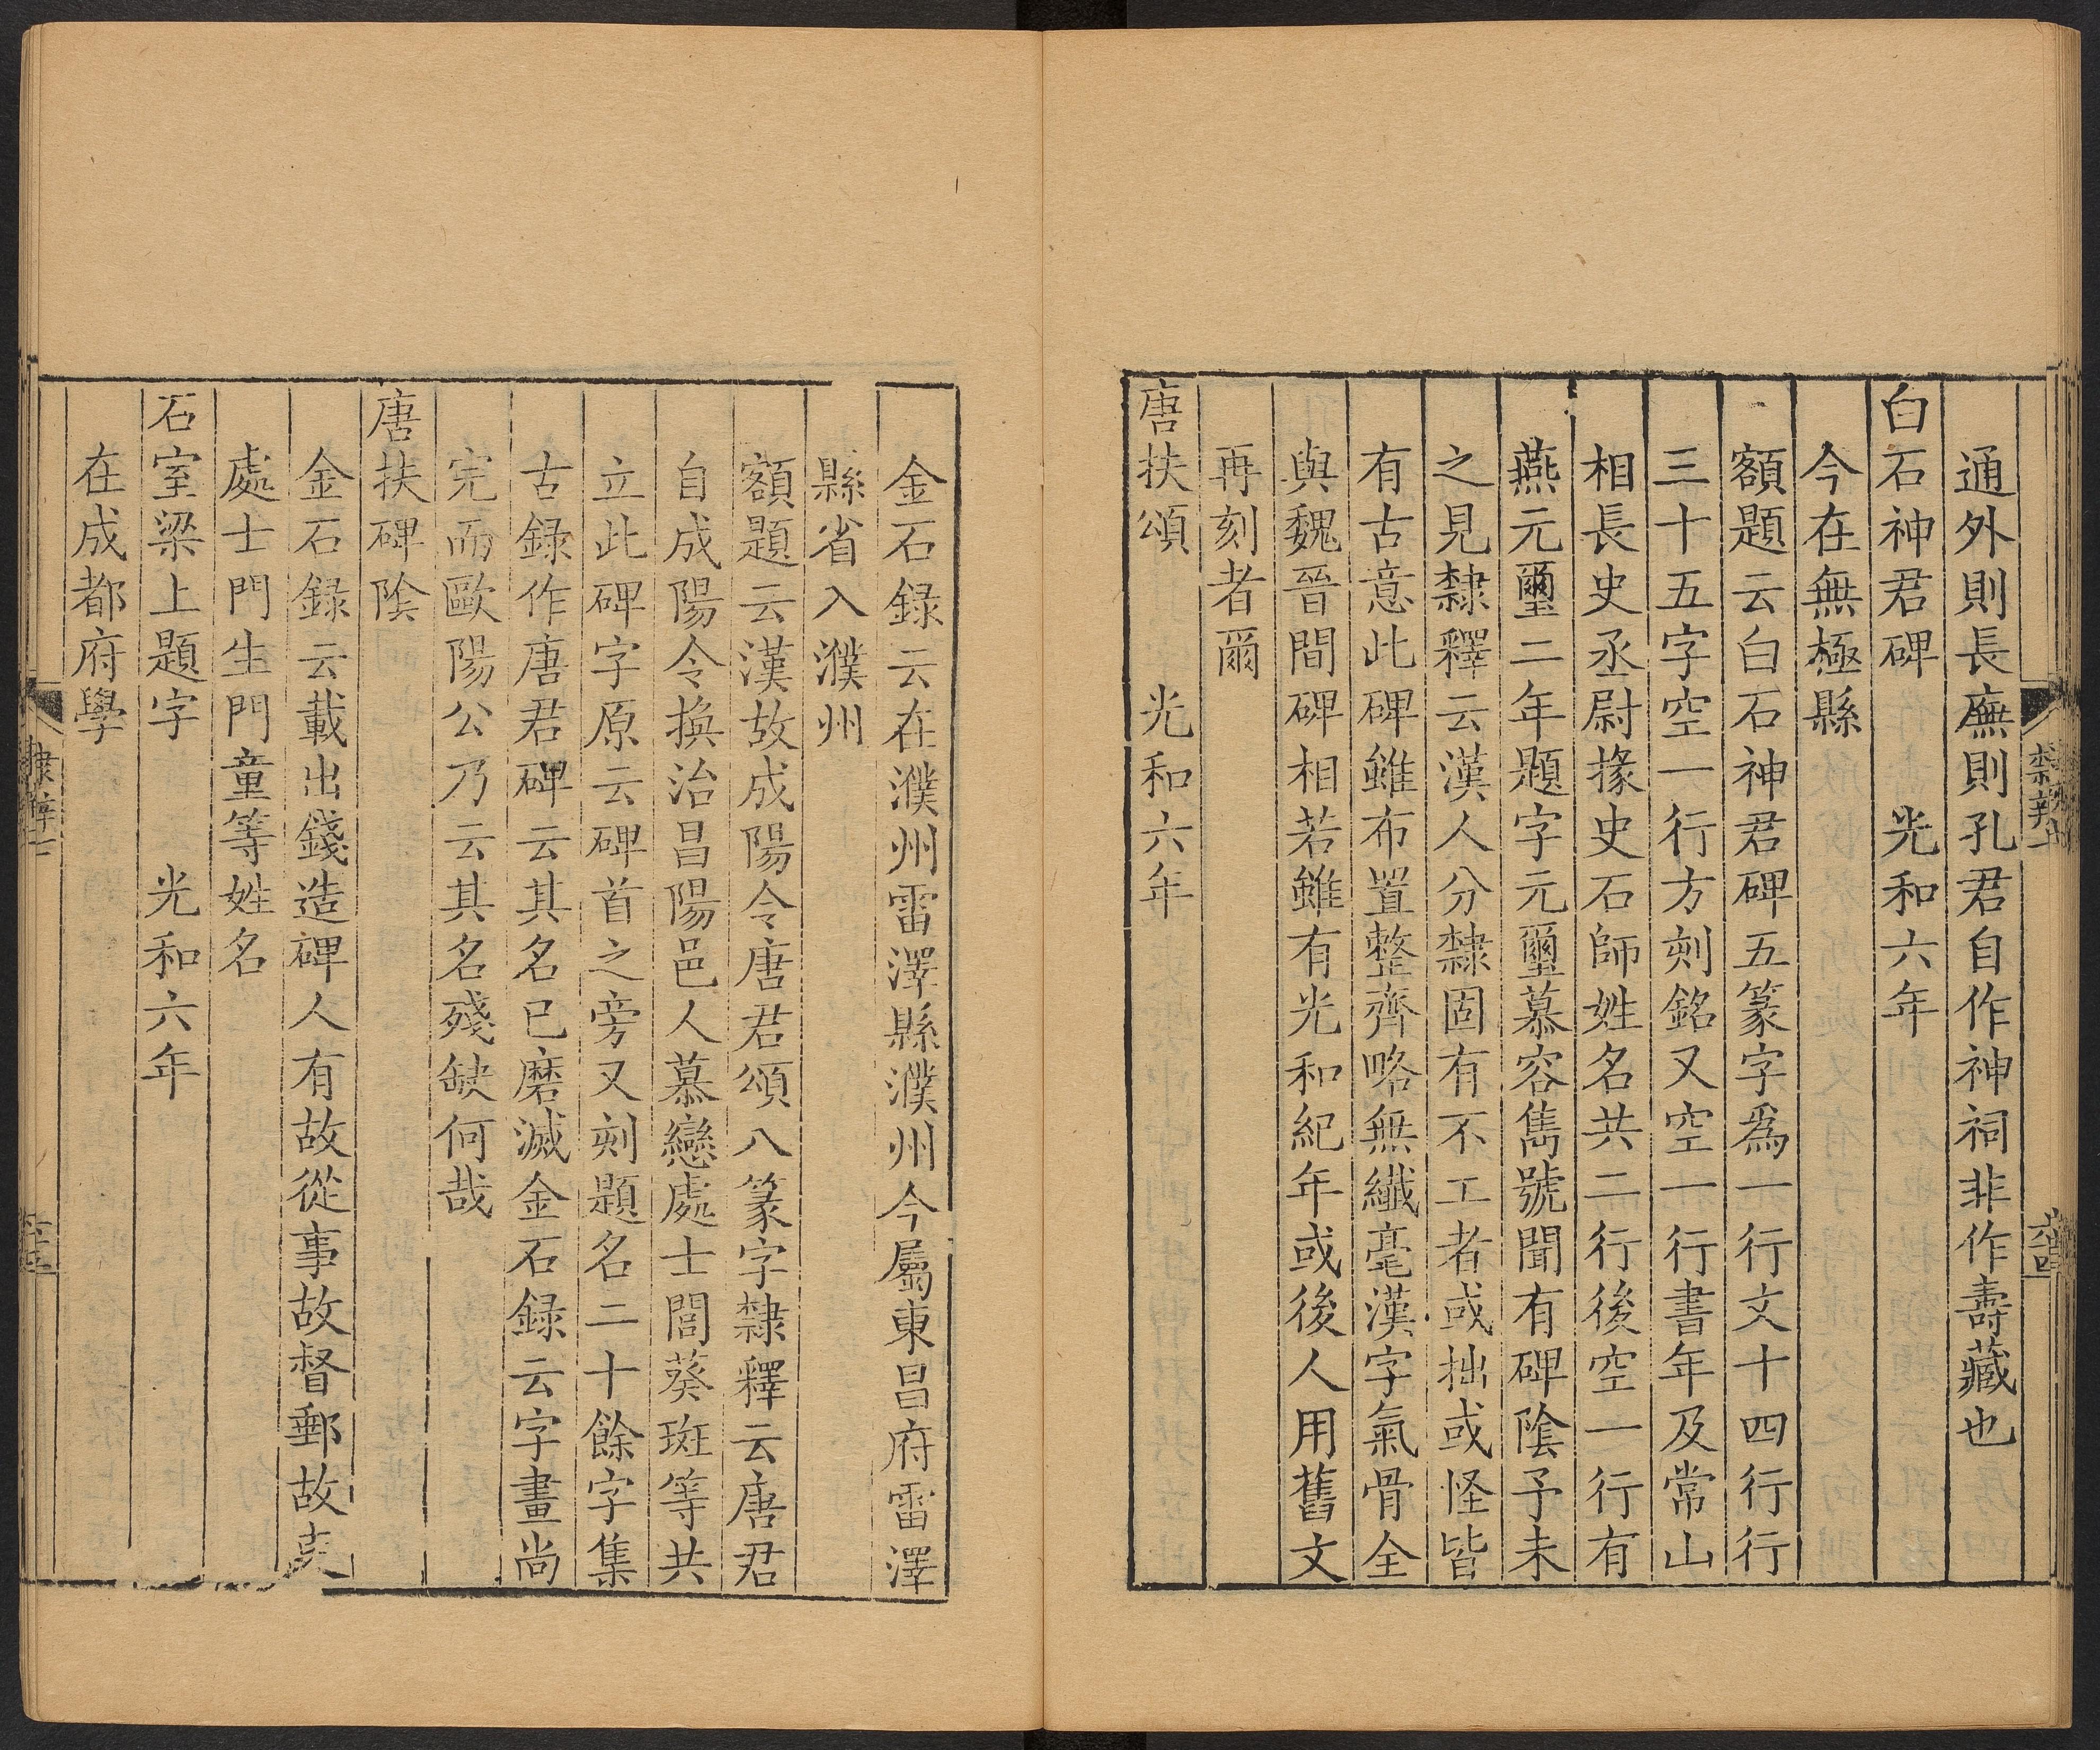 通外則長廡則孔君自作神祠非作壽藏也
白石神君碑　光和六年
今在無極縣
額題云白石神君碑五篆字爲一行文十四行行
三十五字空一行方刻銘又空一行書年及常山
相長史丞尉掾史石師姓名共二行後空一行有
燕元璽二年題字元璽慕容雋號聞有碑陰予未
之見隸釋云漢人分隸固有不工者或拙或怪皆
有古意此碑雖布置整齊略無纖毫漢字氣骨全
與魏晉間碑相若雖有光和紀年或後人用舊文
再刻者爾
唐扶頌　光和六年
金石録云在濮州雷澤縣濮州今屬東昌府雷澤
縣省入濮州
額題云漢故成陽令唐君頌八篆字隸釋云唐君
自成陽令換治昌陽邑人慕戀處士閭葵斑等共
立此碑字原云碑首之旁又刻題名二十餘字集
古録作唐君碑云其名已磨滅金石録云字畫尚
完而歐陽公乃云其名殘缺何哉
唐扶碑陰
金石録云載出錢造碑人有故從事故督郵故吏
處士門生門童等姓名
石室梁上題字　光和六年
在成都府學